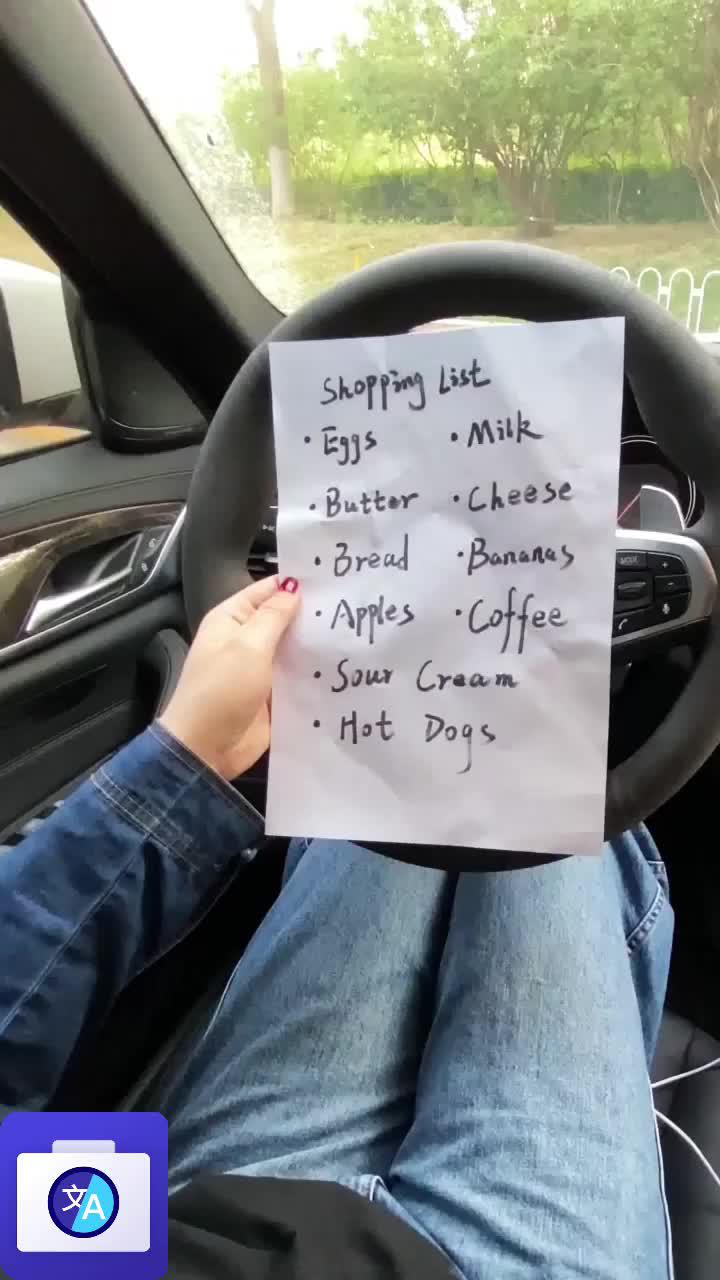 Shopping List
• Eggs • Milk
• Butter • Cheese
• Bread • Bananas
• Apples • Coffee
• Sour Cream
• Hot Dogs
MODE
文A